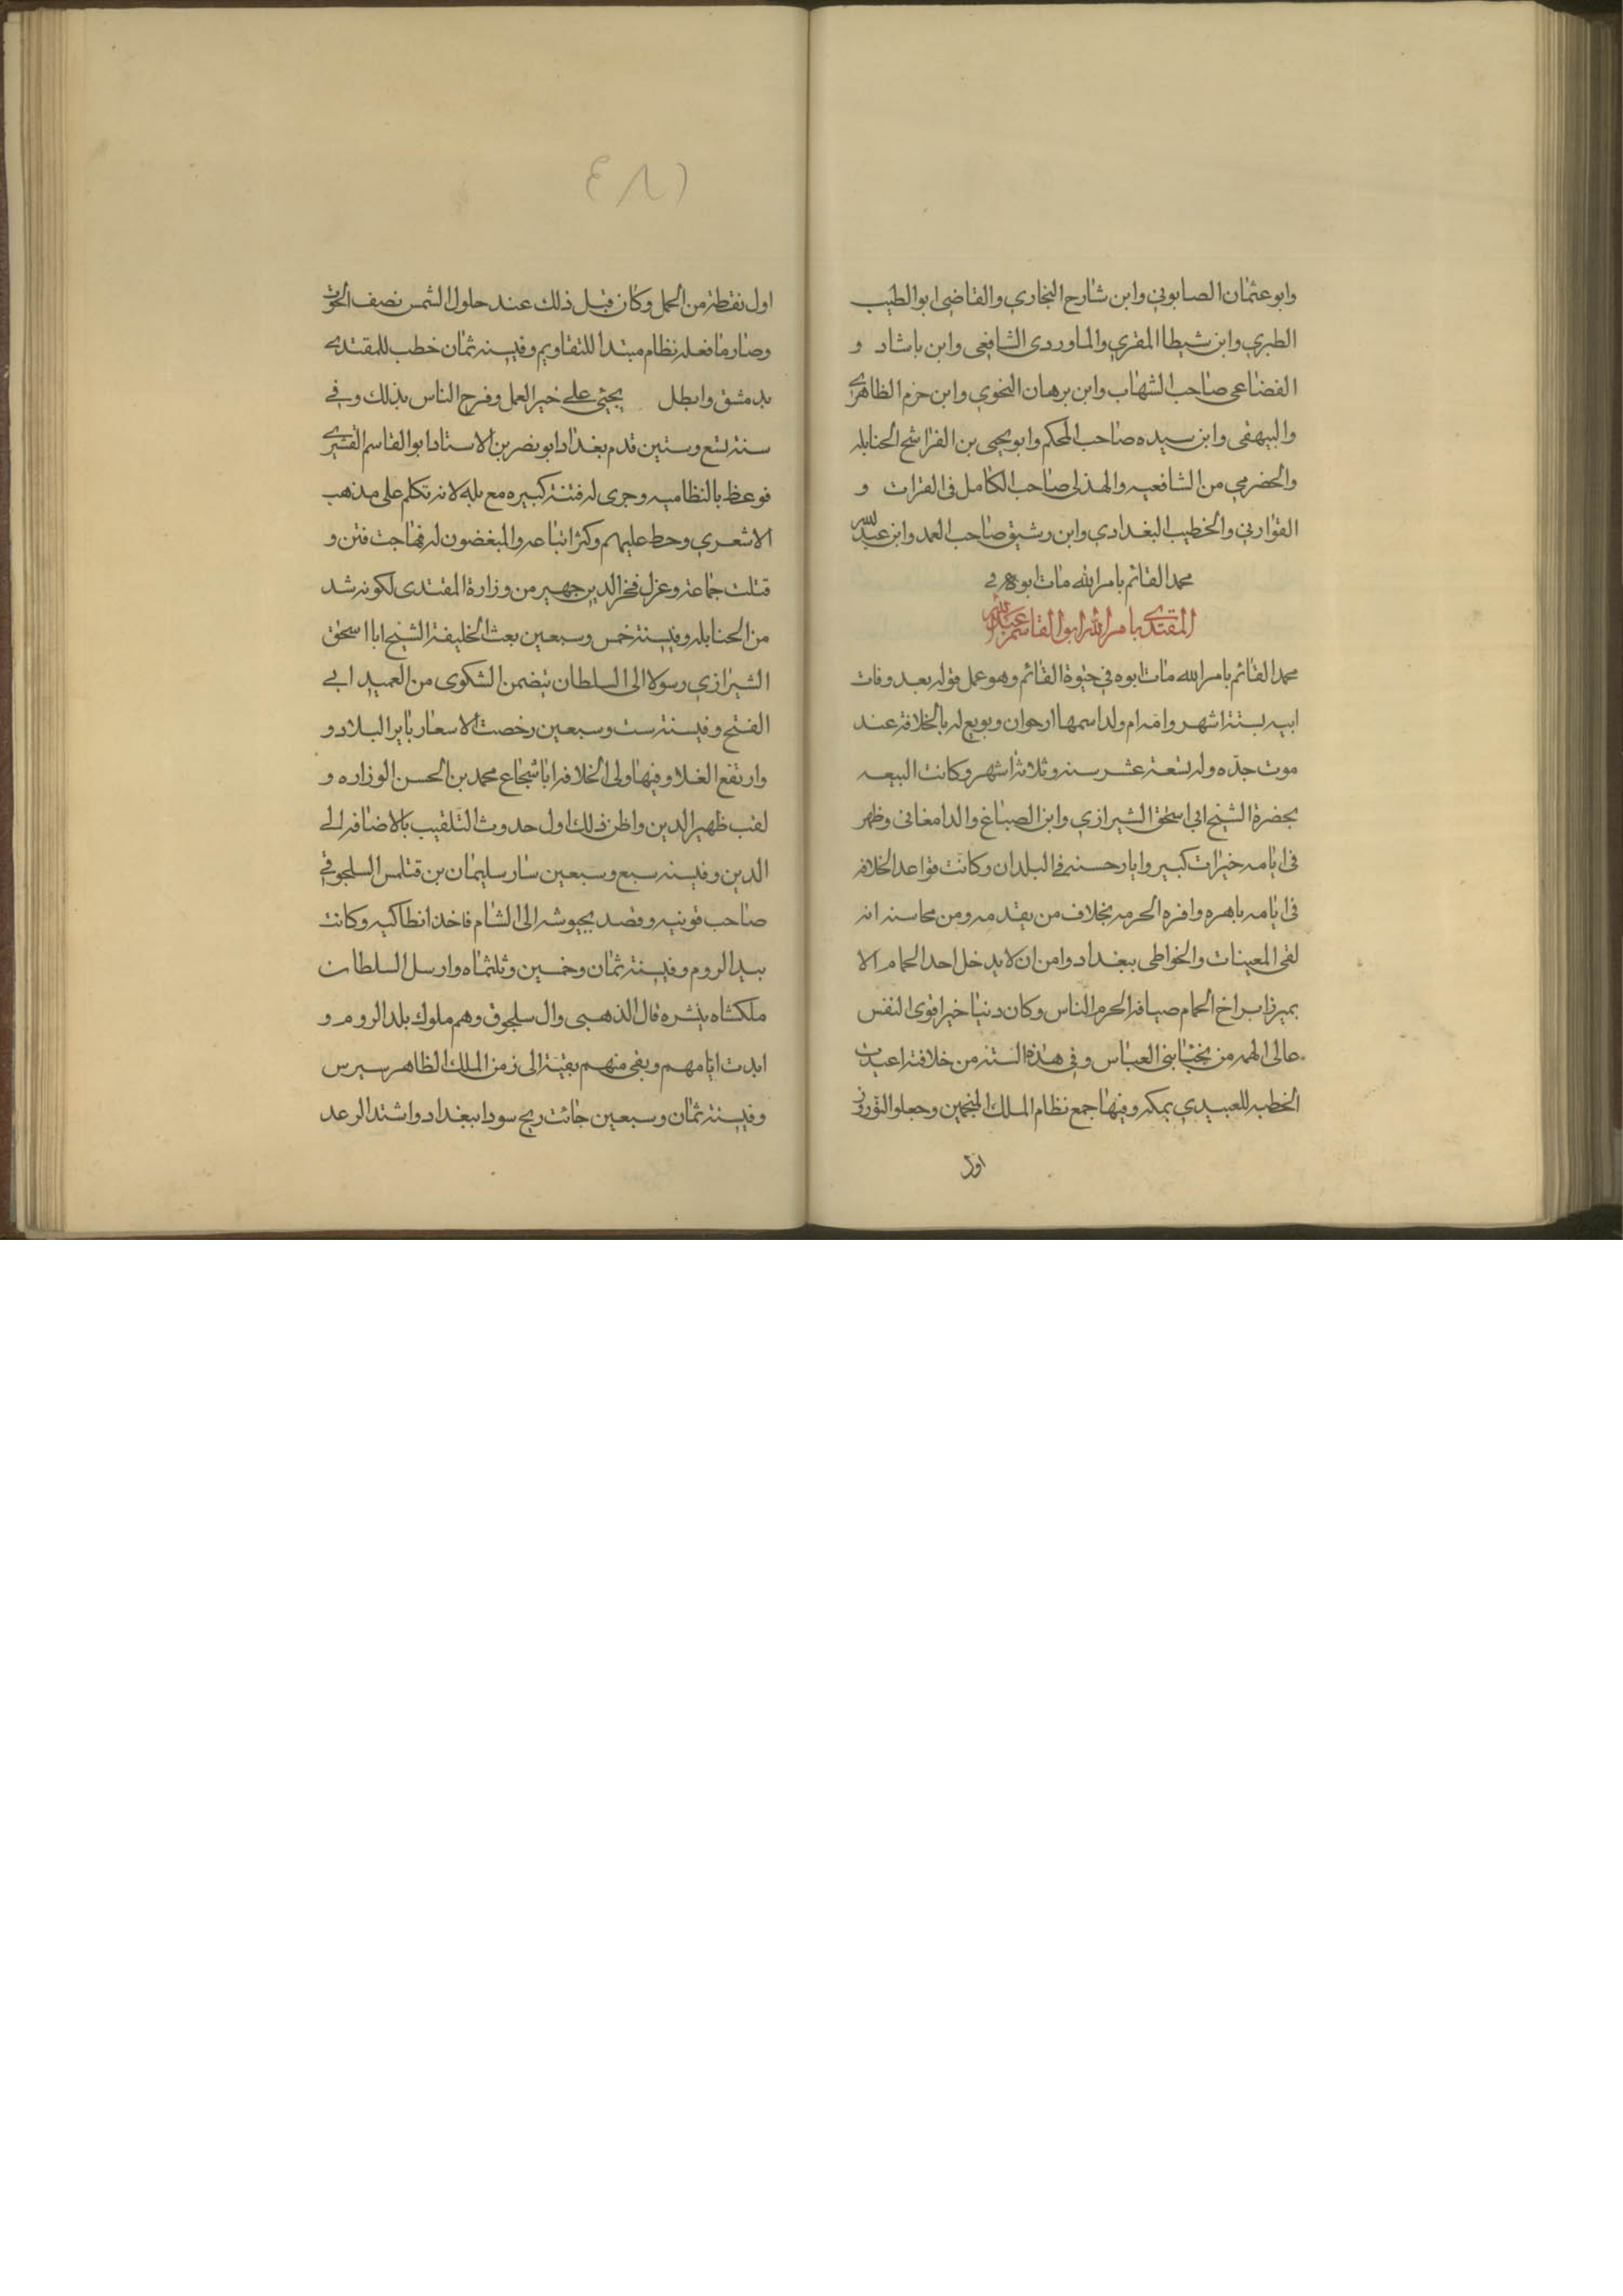 وابو عثمان الصابوني وابن شارح البخاري والقاضي ابو الطيب
الطبري وابن شيطا المقري والماوردى الشافعى وابن باشاد و
القضاعى صاحب الشهاب وابن برهان النحوي وابن حزم الظاهرى
والبيهقى وابن سيده صاحب المحكم وابو يحيى بن الفرا شيخ الحنابله
والحضرمي من الشافعيه والهذلى صاحب الكامل فى القرات و
القواريني والخطيب البغدادي وابن رشيق صاحب العمد وابن عبد الله
محمد القائم بامر الله مات ابوه في
المقتدى بامر الله ابو القاسم عبد الله
محمد القائم بامر الله مات ابوه في حيوة القائم وهو عمل فولد بعد وفات
ابيه بستة اشهر وامه ام ولد اسمها ارحوان وبويع له بالخلافة عند
موت جدّه وله تسعة عشر سنه وثلاثة اشهر وكانت البيعه
بحضرة الشيخ ابى اسحق الشيرازي وابن الصباغ والدامغانى وظهر
فى ايامه خيرات كبير واىار حسنه فى البلدان وكانت قواعد الخلافه
فى ايامه باهره وافره الحرمه بخلاف من يقدمه ومن محاسنه انه
لفى المعينات والخواطى ببغداد وامن ان لا يدخل احد الحمام الا
بميزر ابراخ الحمام صيافه الحرم الناس وكان دنيا خيرا قوى النفس
عالى الهمه من نجبا بنى العباس وفي هذه السنة من خلافته اعيدت
الخطبه للعبيدي بمكه وفيها جمع نظام الملك المنجمين وجعلوا النوروز
اول
(٤٨)
اول نقطة من الحمل وكان قبل ذلك عند حلول الشمس نصف الحوت
وصار ما فعله نظام مبتدا للتقاويم وفي سنه ثمان خطب للمقتدى
بدمشق وابطل يحيى على خير العمل وفرح الناس بذلك وفي
سنة تسع وستين قدم بغداد ابو بصر بن الاستاد ابو القاسم القشيرى
فوعظ بالنظاميه وجرى له فتنة كبيره مع بله لانه تكلم على مذهب
الاشعري وحط عليهم وكثر اتباعه والمبغضون له فهاجت فتن و
قتلت جماعة وعزل فخر الدين جهير من وزارة المقتدى لكونه شد
من الحنابله وفي سنة خمس وسبعين بعث الخليفة الشيخ ابا اسحق
الشيرازي رسولا الى السلطان يتضمن الشكوى من العميد ابي
الفتح وفي سنة ست وسبعين رخصت الاسعار باير البلاد و
وارتفع الغلا وفيها ولى الخلافه ابا شجاع محمد بن الحسن الوزاره و
لقب ظهير الدين واظن ذلك اول حدوث التلقيب بالاضافه الى
الدين وفي سنه سبع وسبعين سار سليمان بن قتلمس السلجوقي
صاحب قونيه وقصد بجيوشه الى الشام فاخذ انطاكيه وكانت
بيد الروم وفي سنة ثمان وخمسين وثلثماه وارسل السلطان
ملكشاه يبشره قال الذهبى وال سلجوق وهم ملوك بلد الروم و
ابدت ايامهم وبقى منهم بقية الى زمن الملك الظاهر بيبرس
وفي سنة ثمان وسبعين جائت ريح سودا ببغداد واشتد الرعد